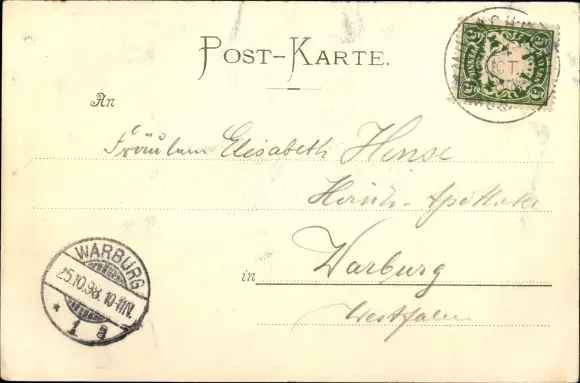 POST-KARTE.
An
Fräulein Elisabeth Hense
Apotheke
in Warburg
Westfalen
WARBURG
25.10.98. 10-11N.
* 1 a
5 5
5 5